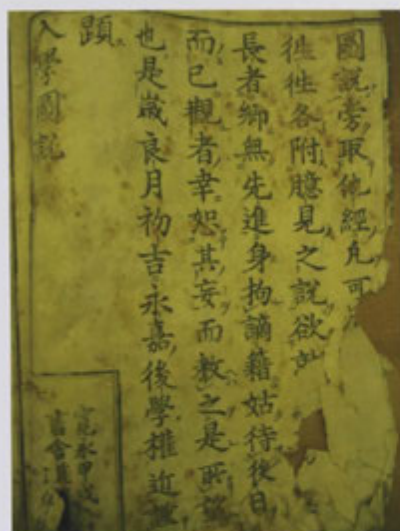 圖說旁取他經凡可
徃徃各附臆見之說欲
長者鄉無先進身拘謫籍姑待後日
而已觀者幸恕其妄而教之是所
也是歲良月初吉永嘉後學權近
題
入學圖說
寛永甲戌